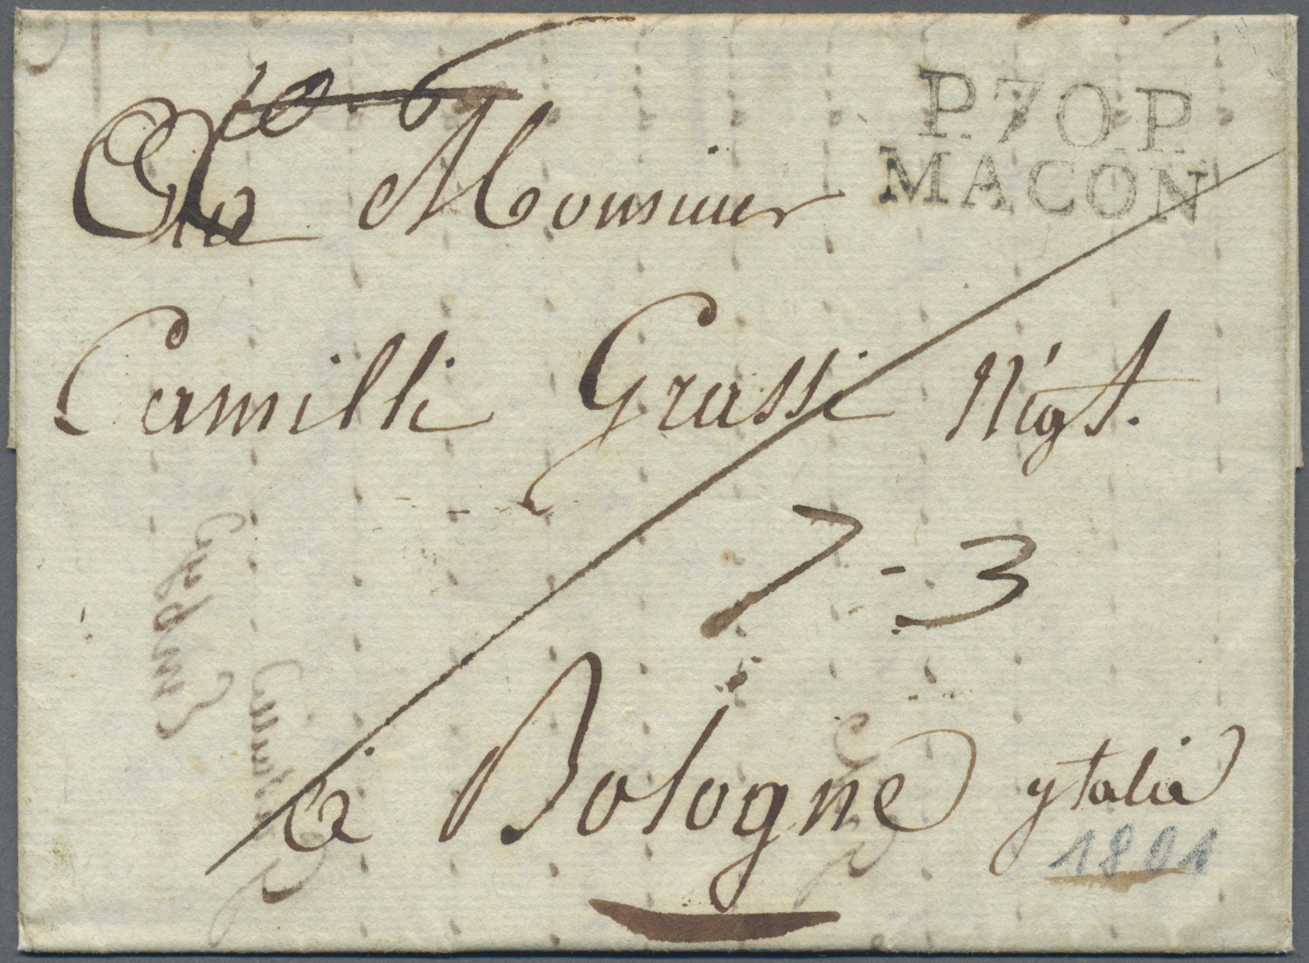 10-6
P.70.P.
MACON
A Monsieur
Camilli Grassi Nigt.
7-3
à Bologne ytalia
1801